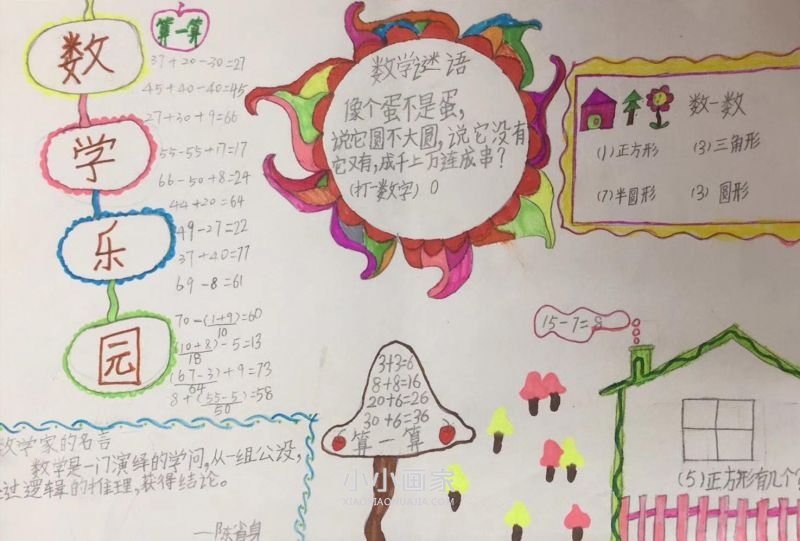 数
学
乐
园
算一算
37+20-30=27
45+40-40=45
27+30+9=66
55-55+17=17
66-50+8=24
44+20=64
49-27=22
37+40=77
69-8=61
70-(1+9)=60
10
(10+8)-5=13
18
(67-3)+9=73
64
8+(55-5)=58
50
数学谜语
像个蛋不是蛋,
说它圆不大圆,说它没有
它又有,成千上万连成串?
(打一数字) 0
数一数
(1)正方形 (3)三角形
(7)半圆形 (3)圆形
15-7=8
3+3=6
8+8=16
20+6=26
30+6=36
算一算
(5)正方形有几个
数学家的名言
数学是一门演绎的学问,从一组公设,
过逻辑的推理,获得结论。
—陈省身
小小画家
XIAOXIAOHUAJIA.COM